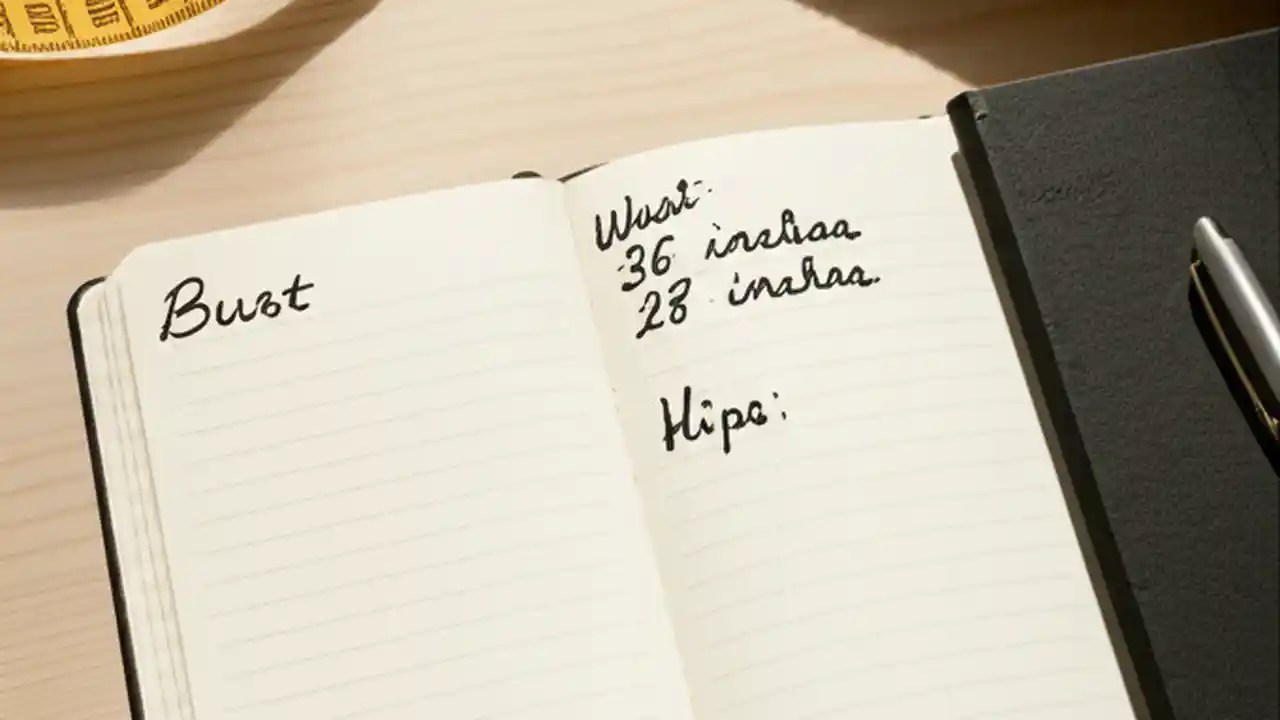 Bust
Wast:
36 inshaa
28 inahaa.
Hips: